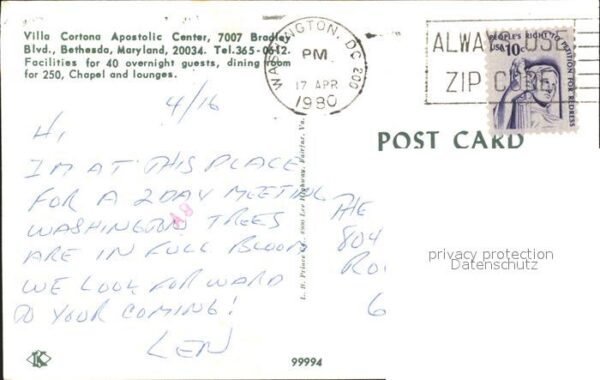 Villa Cortona Apostolic Center, 7007 Bradley
Blvd., Bethesda, Maryland, 20034. Tel. 365-0612.
Facilities for 40 overnight guests, dining room
for 250, Chapel and lounges.
4/16
HI,
I'M AT THIS PLACE
FOR A 2 DAY MEETING
WASHINGTON TREES
ARE IN FULL BLOOM
WE LOOK FORWARD
TO YOUR COMING!
LEN
L. B. Prince Co. Lee Highway, Fairfax, Va.
99994
K
WASHINGTON, DC 200
PM
17 APR
1980
ALWAYS USE
ZIP CODE
PEOPLE'S RIGHT TO PETITION FOR REDRESS
USA 10c
POST CARD
THE
804
RO
6
privacy protection
Datenschutz